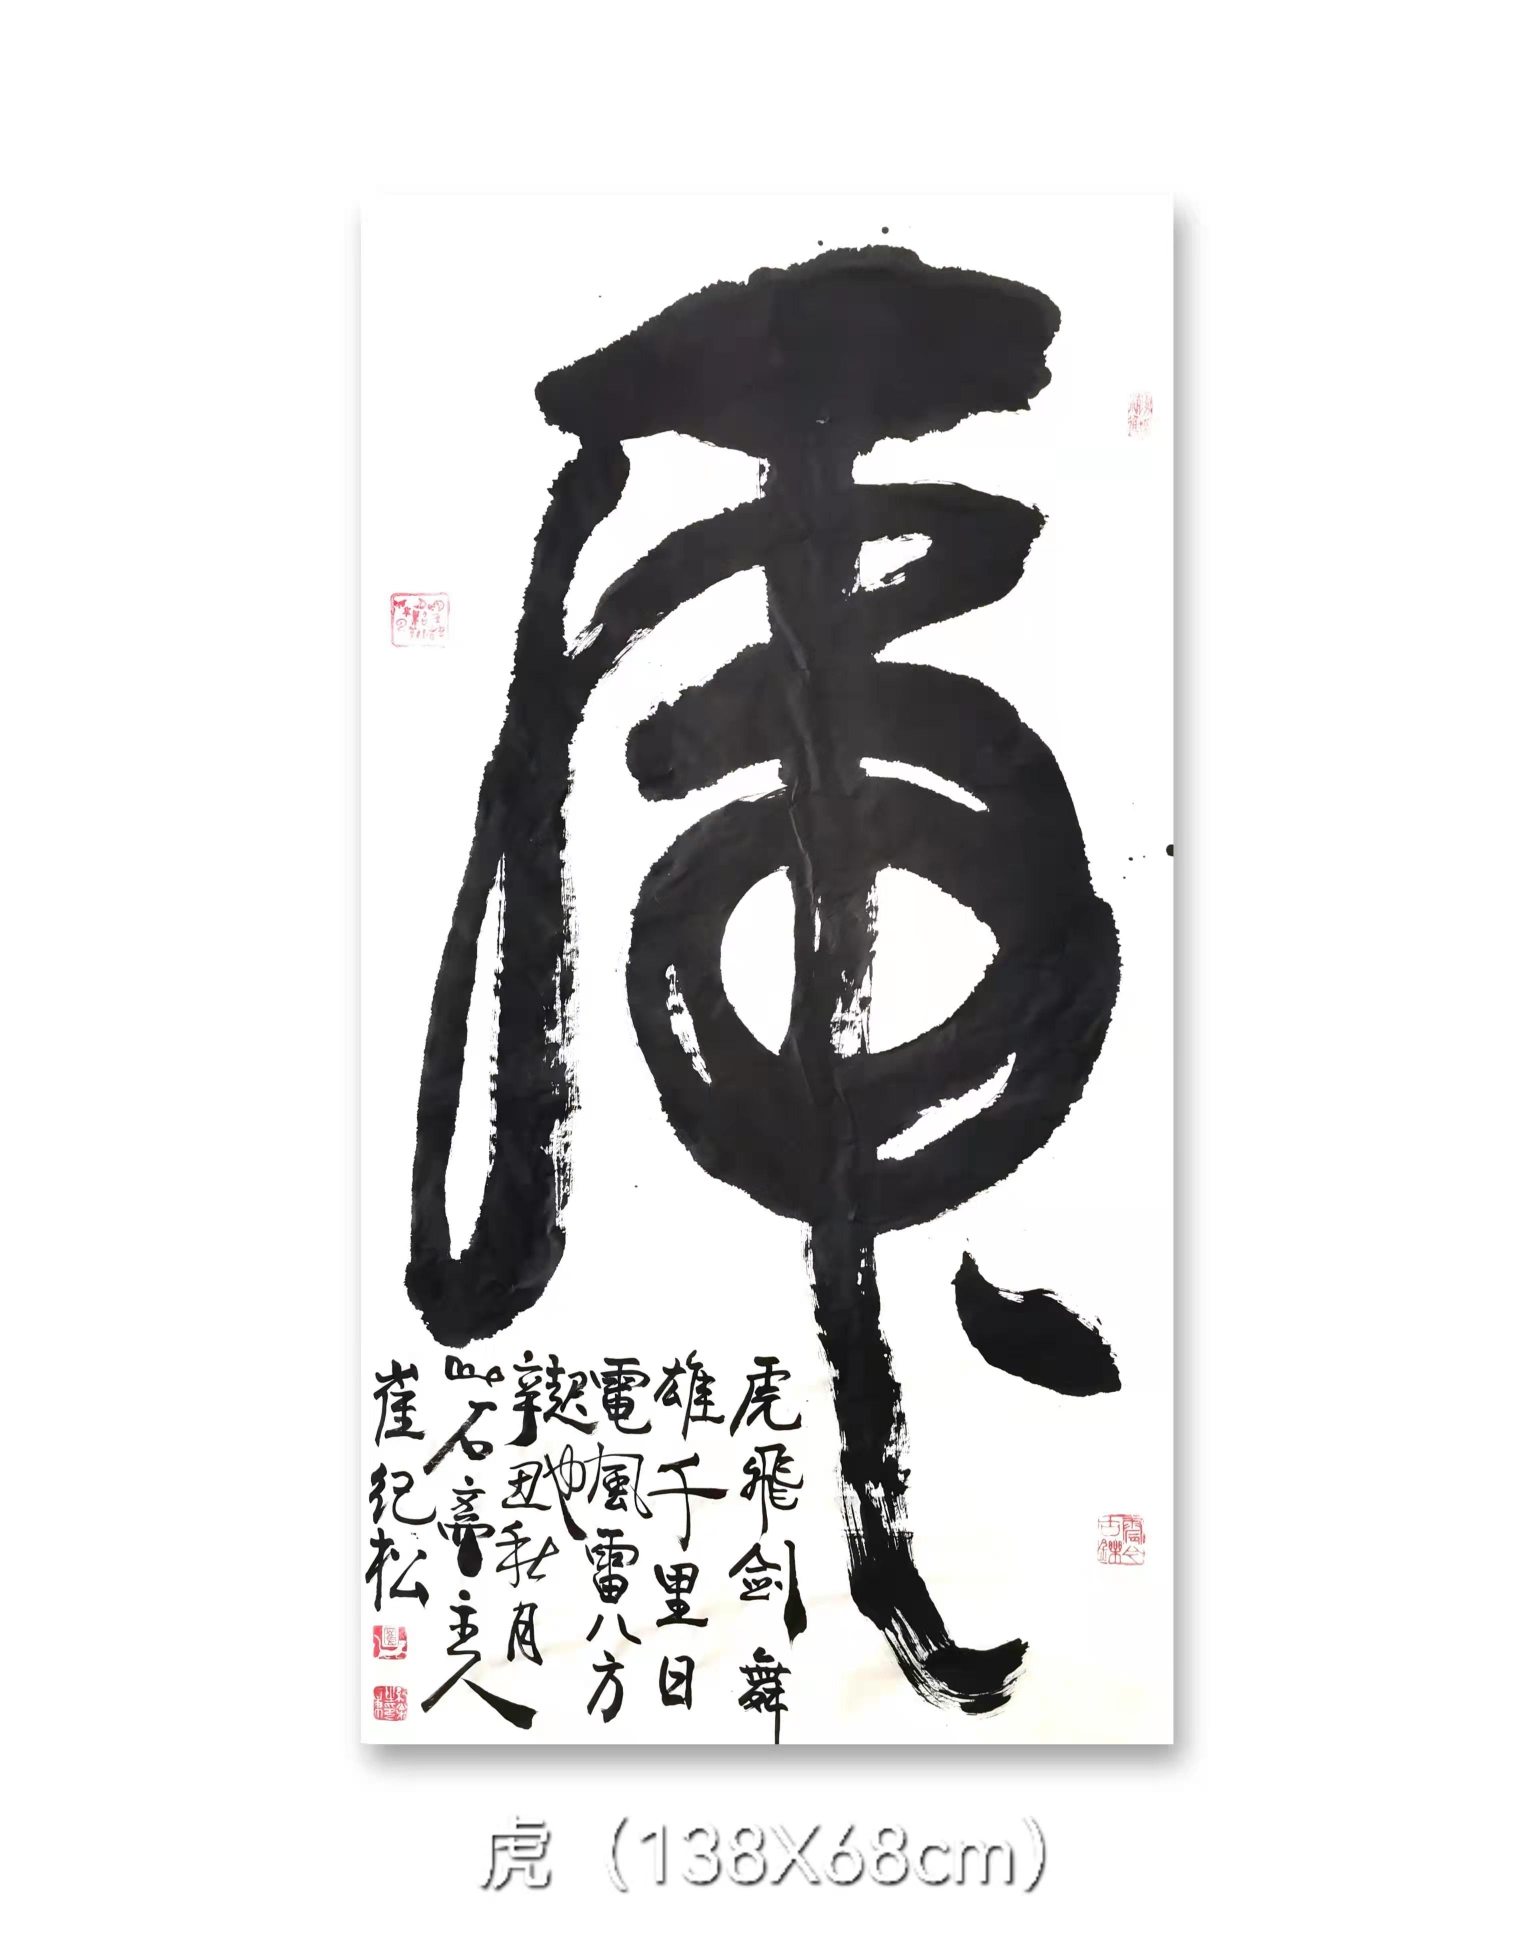 虎
虎飛剑舞
雄千里日
電風雷八方
也
辛丑秋月
山石齋主人
崔纪松
虎（138X68cm）